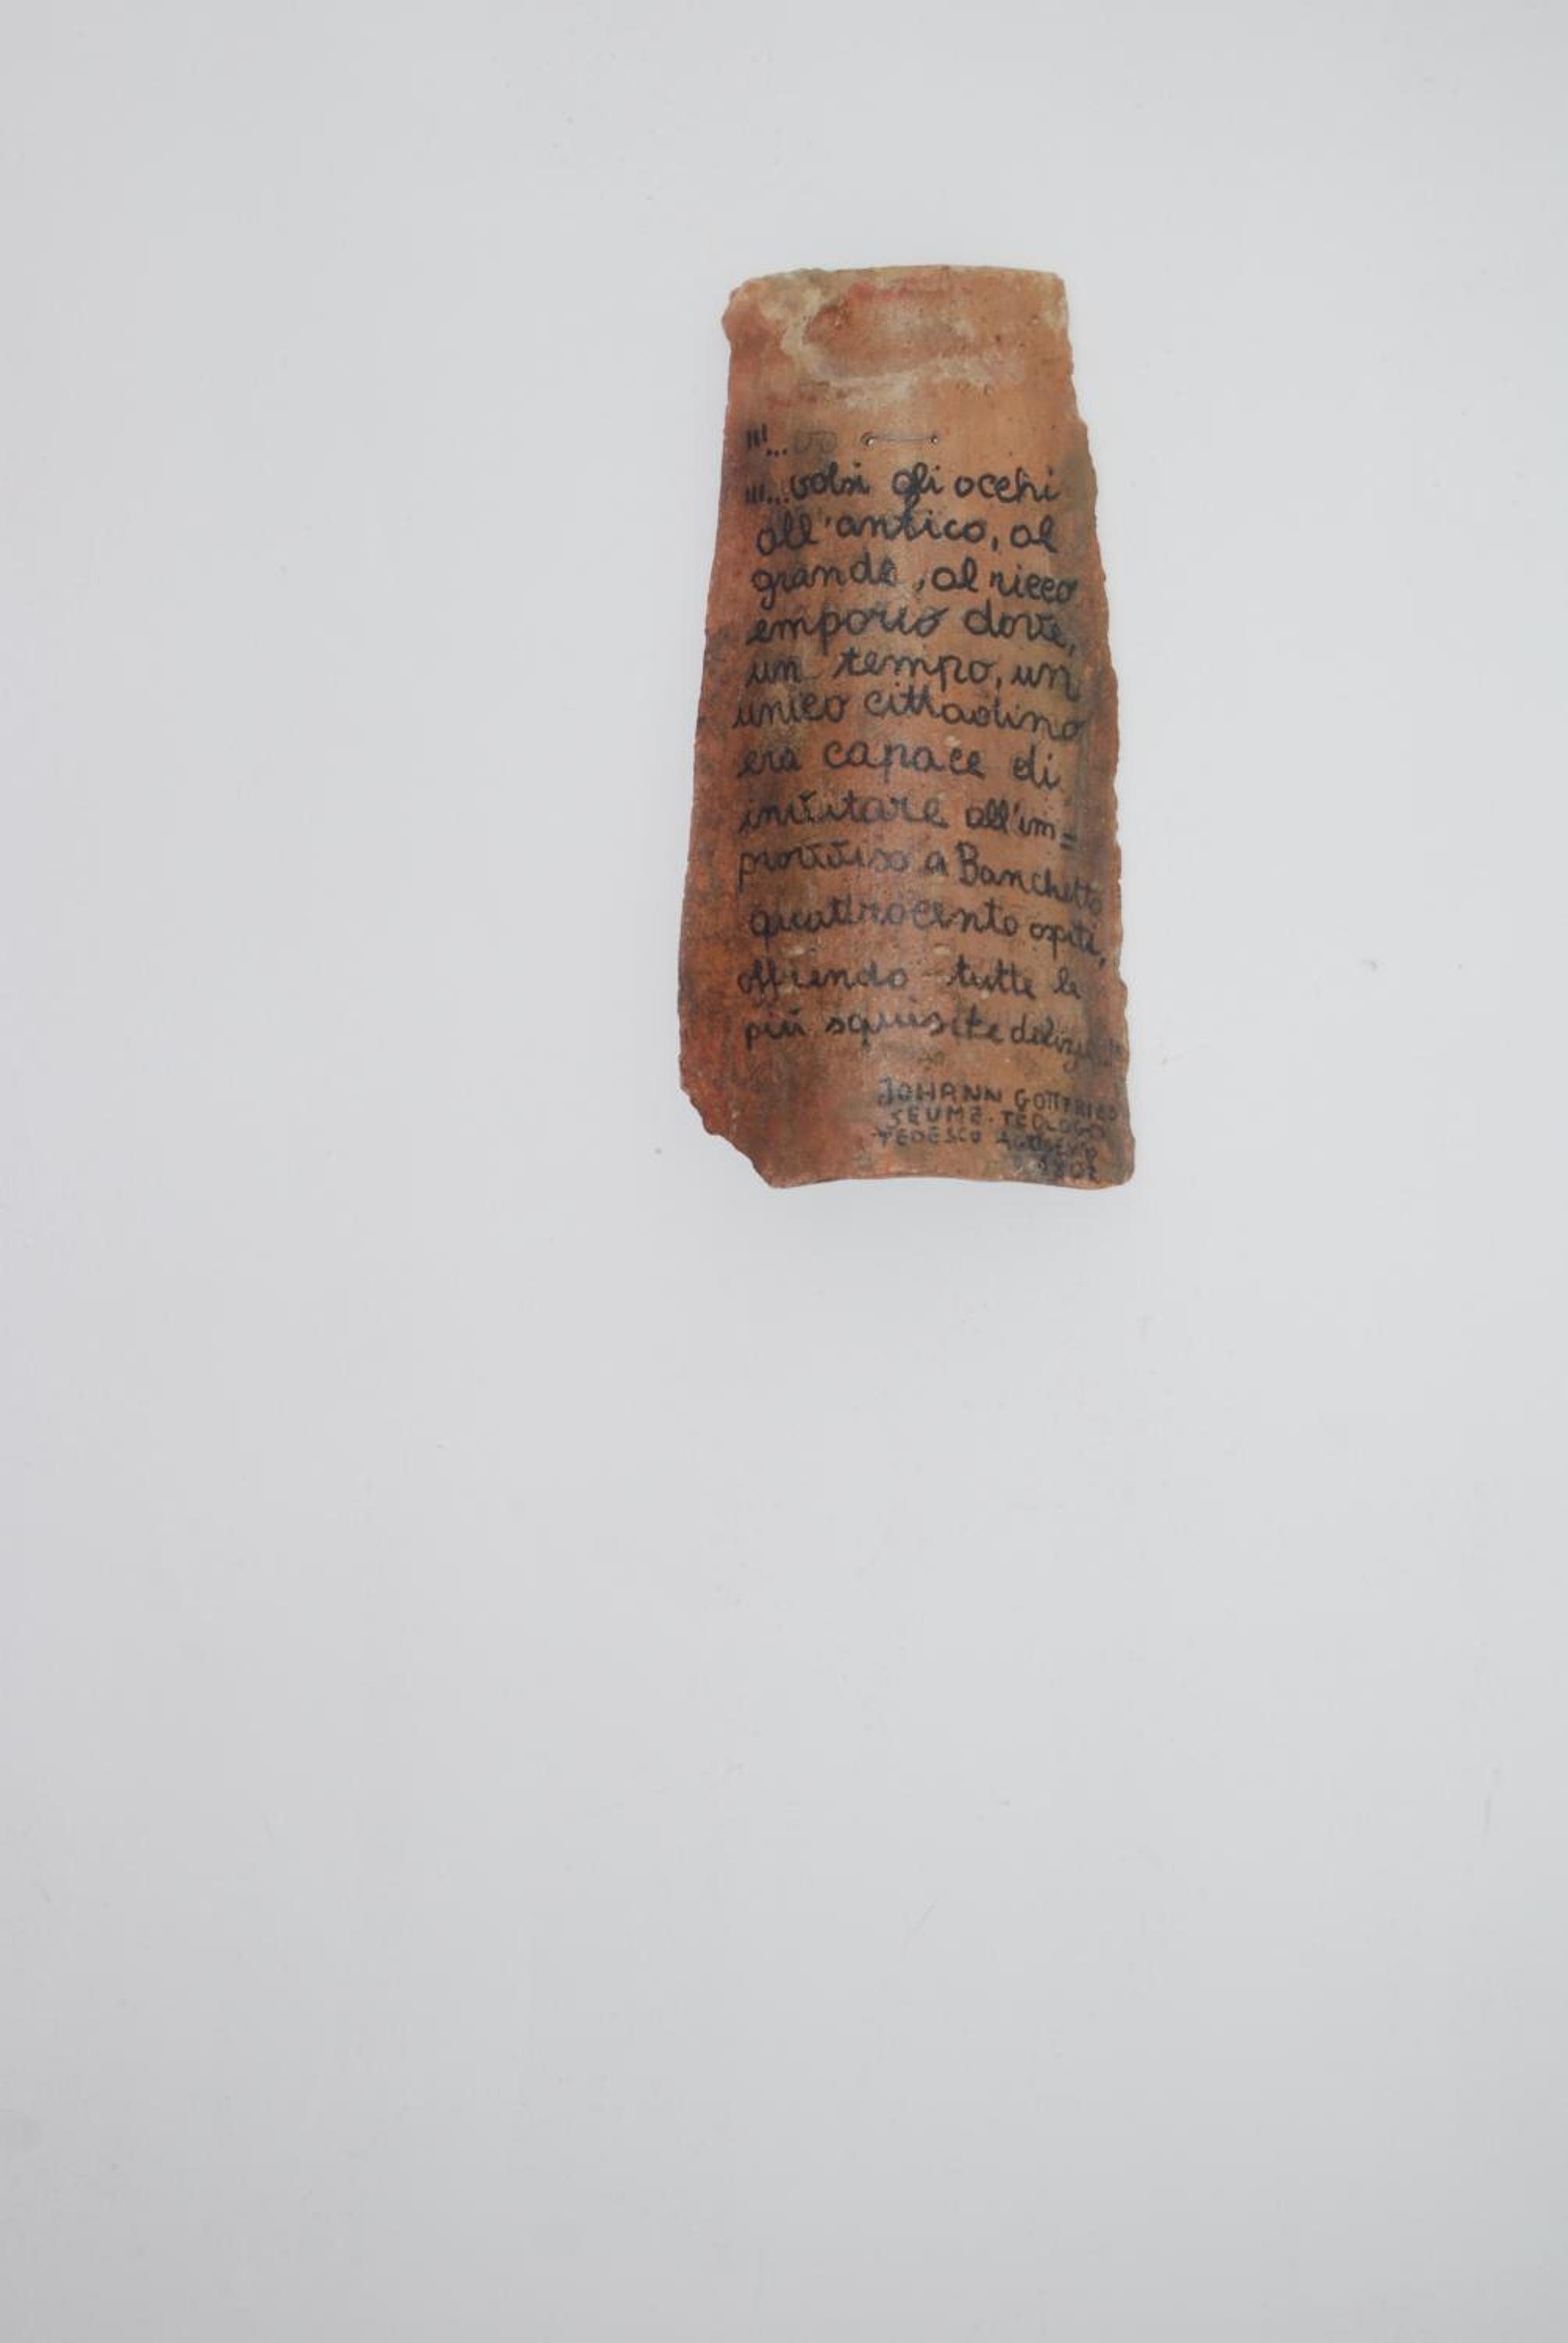 "...
"...volsi gli occhi
all'antico, al
grande, al ricco
emporio dove,
un tempo, un
unico cittadino
era capace di
invitare all'im=
provviso a Banchetto
quattrocento ospiti,
offrendo tutte le
più squisite delizie
JOHANN GOTTFRIED
SEUME. TEOLOGO
TEDESCO